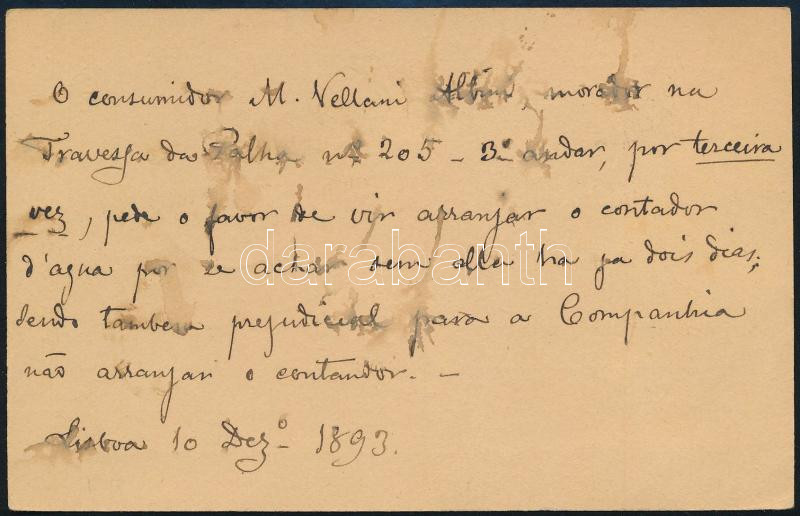 O consumidor M. Vellani Albini, morador na
Travessa da Palha nº 205 - 3º andar, por terceira
vez, pede o favor de vir arranjar o contador
d'agua por se achar sem ella ha ja dois dias;
sendo tambem prejudicial para a Companhia
não arranjar o contandor. -
Lisboa 10 Dezº 1893.
darabanth